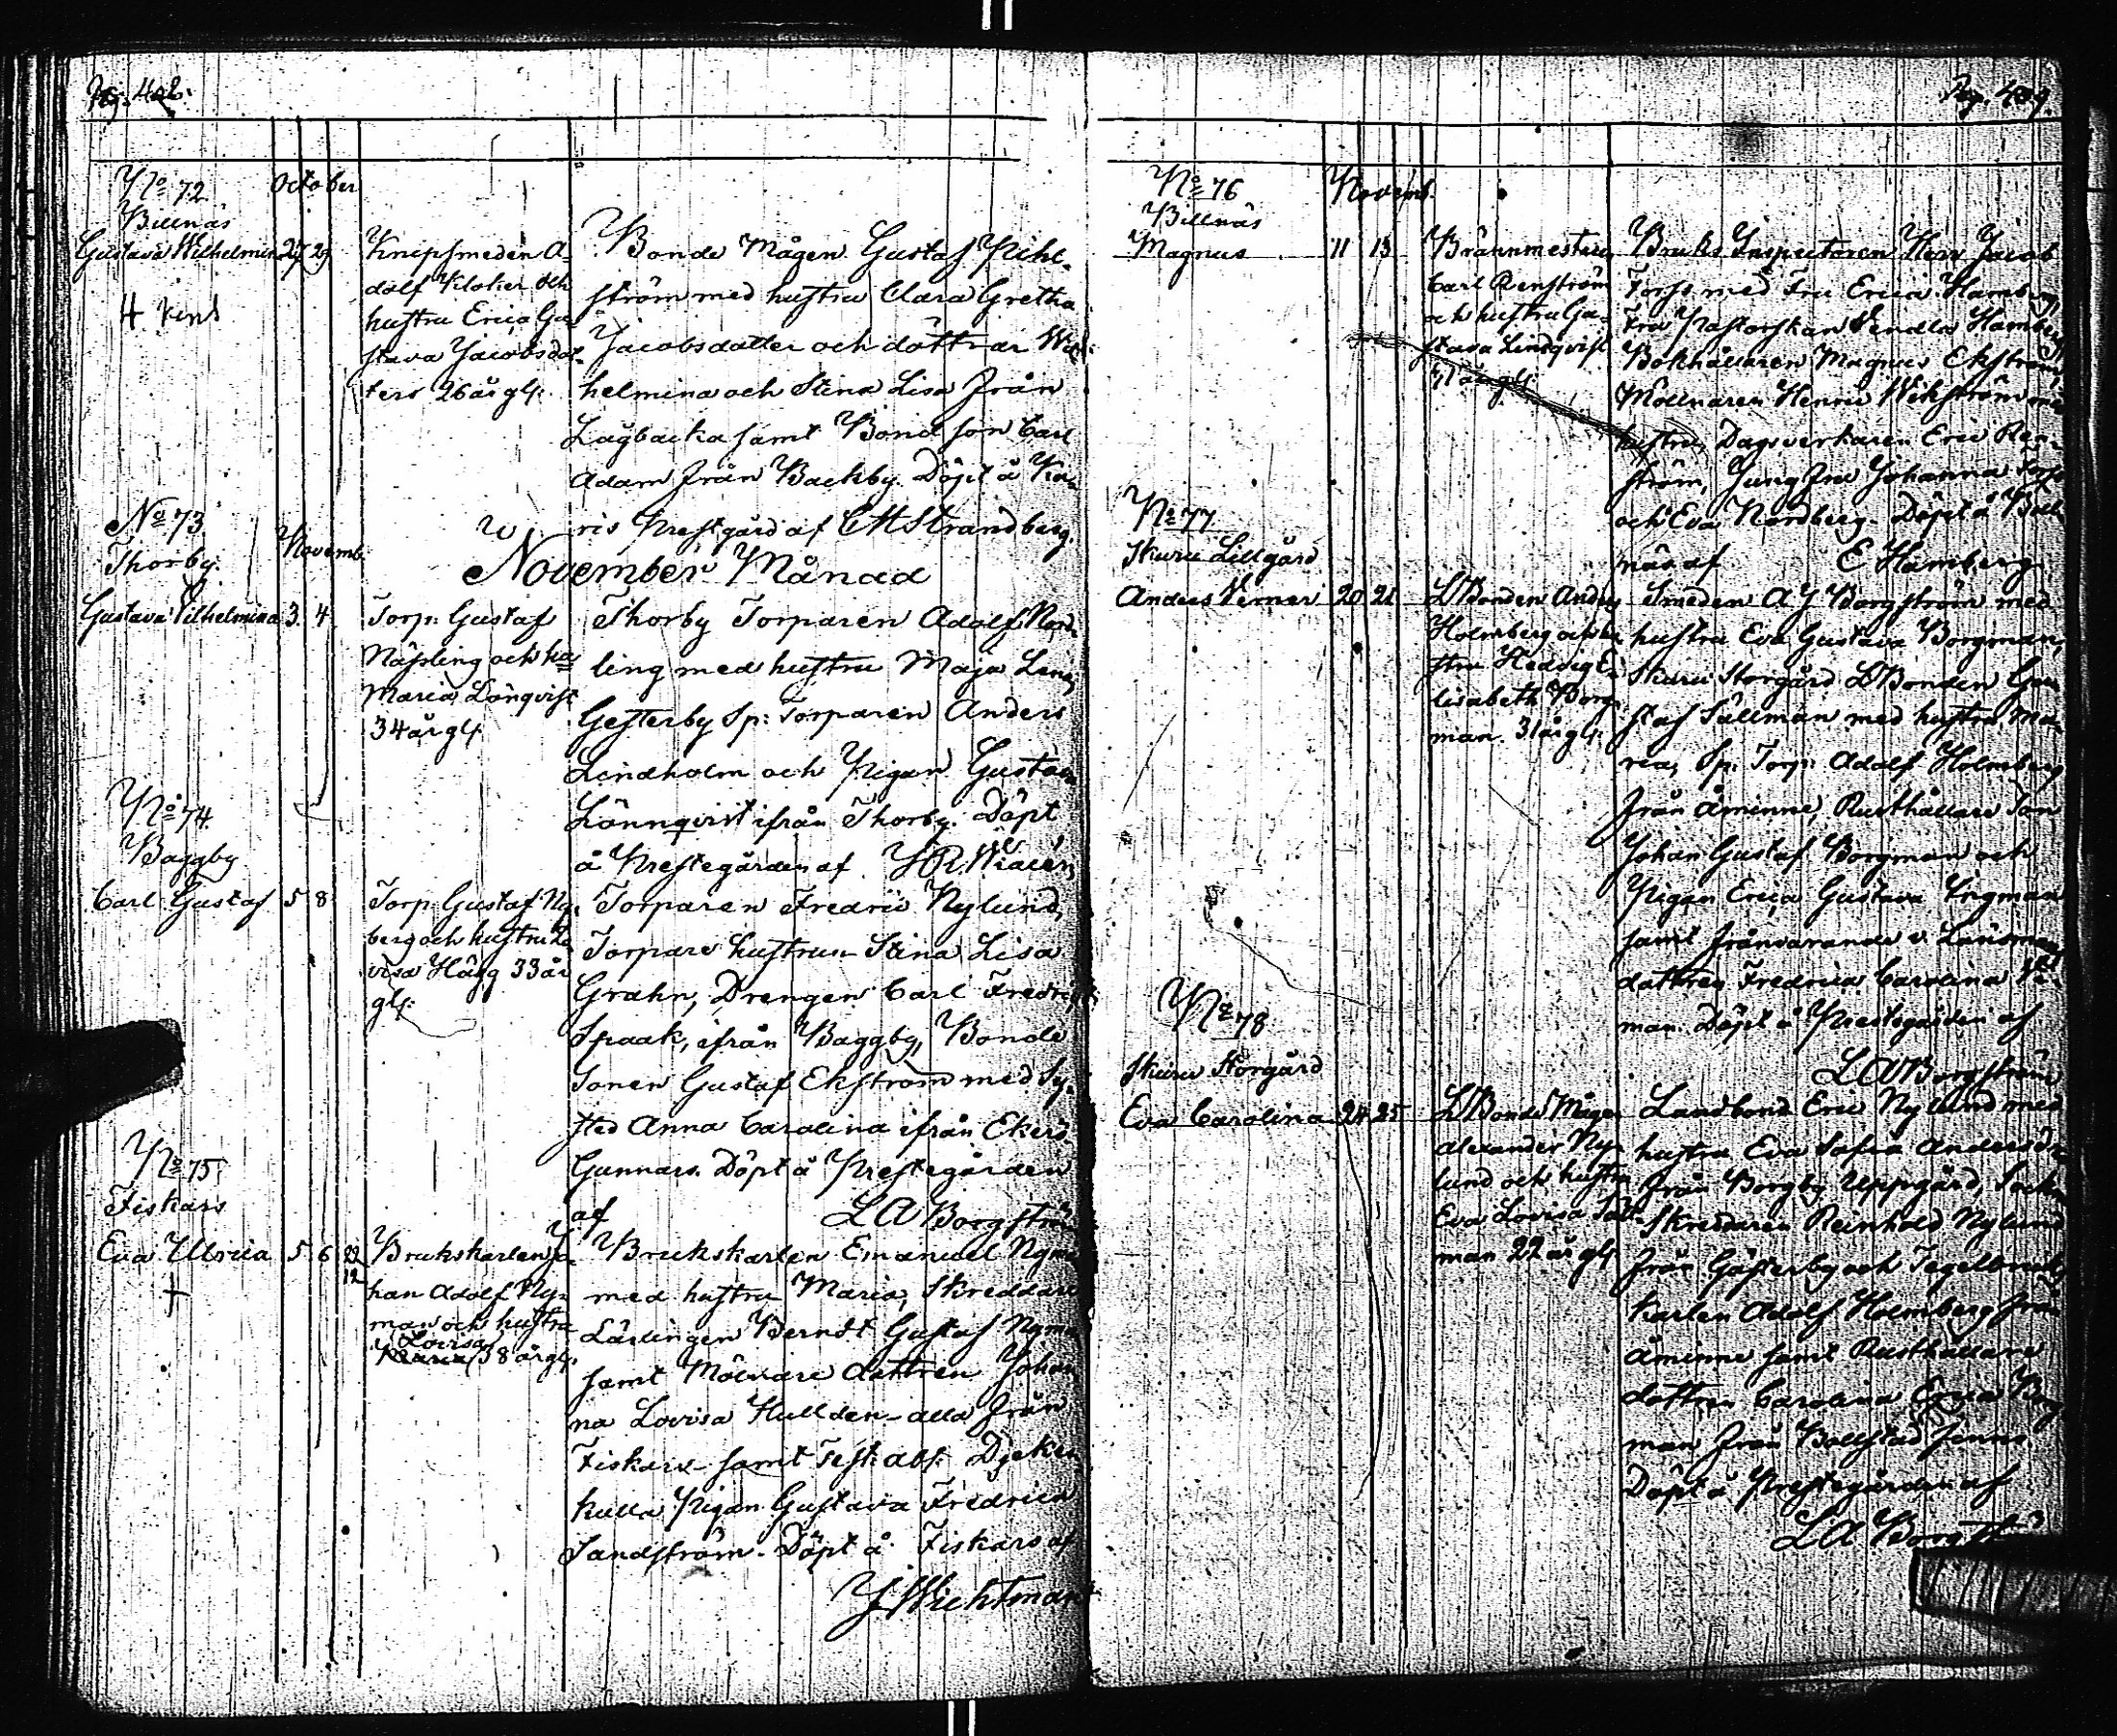 Pag. 408.
No 72
October
Billnäs
Gustava Wilhelmina 27 29
Knipsmeden A-
dolf Kloker och
hustru Erica Gu-
stava Jacobsdot-
ters 26 år gl.
Bonde Mågen Gustaf Pihl-
ström med hustru Clara Gretha
Jacobsdotter och döttrar Wil-
helmina och Stina Lisa från
Lågbacka samt Bonde son Carl
Adam från Backby. Döpt å Ka-
ris Prestgård af Strandberg.
No 73
Thorby.
Novemb.
November Månad
Gustava Vilhelmina 3 4
Torp: Gustaf
Näsling och hu
Maria Lönqvist
34 år gl.
Thorby Torparen Adolf Nord-
ling med hustru Maja Lena,
Gesterby Sp: Torparen Anders
Lindholm och Pigan Gustava
Lönnqvist ifrån Thorby. Döpt
å Prestegården af
No 74.
Baggby
Carl Gustaf 5 8
Torp: Gustaf Ny-
berg och hustru Lo
visa Hägg 33 år
gl.
Torparen Fredric Nylund,
Torpare hustrun Stina Lisa
Grahn, Drengen Carl Fredric
Spaak, ifrån Baggby, Bonde
Sonen Gustaf Ekström med Sy-
sted Anna Carolina ifrån Ekerö
Gunnars. Döpt å Prestegården
af LA Borgström
No 75
Fiskars
Eva Ulrica 5 6 22
12
+
Brukskarlen Jo-
han Adolf Ny-
man och hustru
Lovisa
38 år gl.
Brukskarlen Emanuel Nyma
med hustru Maria, Skreddare
Lärlingen Berndt Gustaf Nyma
samt Mölnare dottren Johan
na Lovisa Kullden alla från
Fiskars samt Testabs: Djeken
kulla Pigan Gustava Fredrica
Sandström. Döpt å Fiskars af
J Wichtman
Pag. 409.
No 76
Novemb.
Billnäs
Magnus 11 13
Brännmestren
Carl Renström
och hustru Gu-
stava Lindqvist
Bruks Inspectoren Herr Jacob
Forss med Fru Erica Hamberg,
Fru Pastorskan Vendla Hamberg
Bokhållaren Magnus Ekström,
Möllnaren Henric Wikström med
hustru, Dagsverkaren Eric Ren-
ström, Jungfru Johanna Forss
och Eva Nordberg. Döpt å Bill-
näs af E Hamberg
No 77
Skuru Lillgård
Anders Verner 20 21
LBonden Anders
Holmberg och hu
stru Hedvig E-
lisabeth Borg-
man. 31 år gl.
Smeden A J Borgström med
hustru Eva Gustava Borgman,
Skuru Storgård LBonden Gu
staf Sällman med hustru Ma-
ria, Sp: Torp: Adolf Holmberg
från Åminne, Rusthållare Son
Johan Gustaf Borgman och
Pigan Erica Gustava
samt frånvarande v. Länsmans
dottren Fredrica Carolina
man. Döpt å Prestegården af
LA Borgström
No 78
Skuru Storgård
Eva Carolina 24 25
LBonde Mågen
Alexander Ny-
lund och hustru
Eva Lovisa Säll-
man 22 år gl.
Landbond Eric Nylund med
hustru Eva Sofia Andersdr
från Borgby Uppgård, Socken
Skreddaren Reinhold Nylund
från Gästerby och Tegelbruks
karlen Adolf Holmberg från
Åminne samt Rusthållare
dottren Carolina Erica Borg
man från Bollstad Jenns
Döpt å Prestegården af
LA Borgst